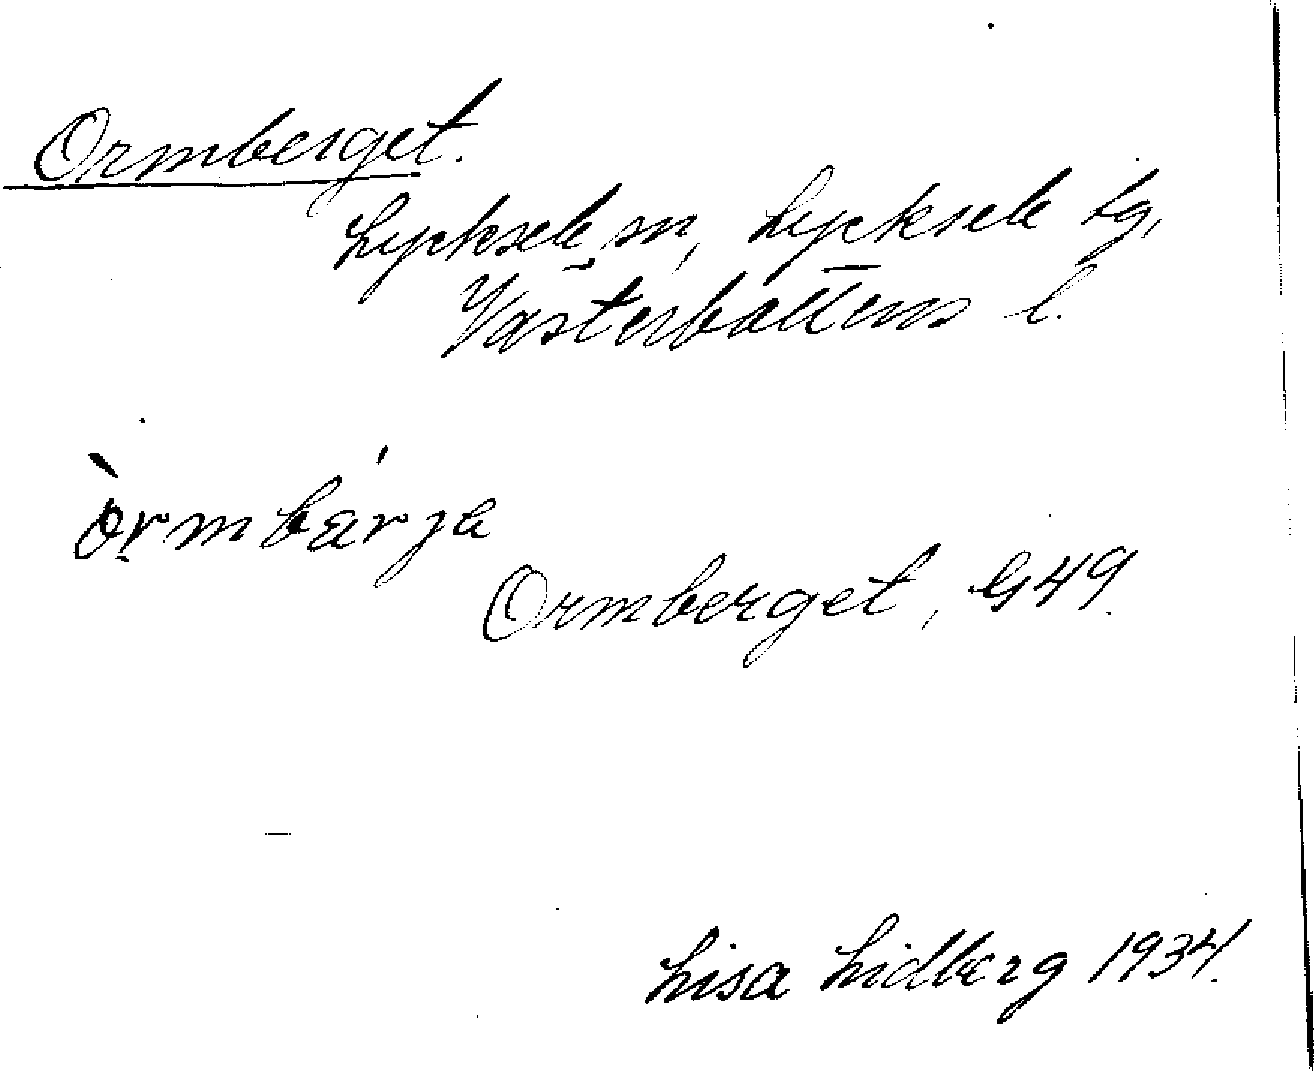 Ormberget.
Lycksele sn, Lycksele tg,
Västerbottens l.
òrmbárja
Ormberget, G49.
Lisa Lidberg 1934.